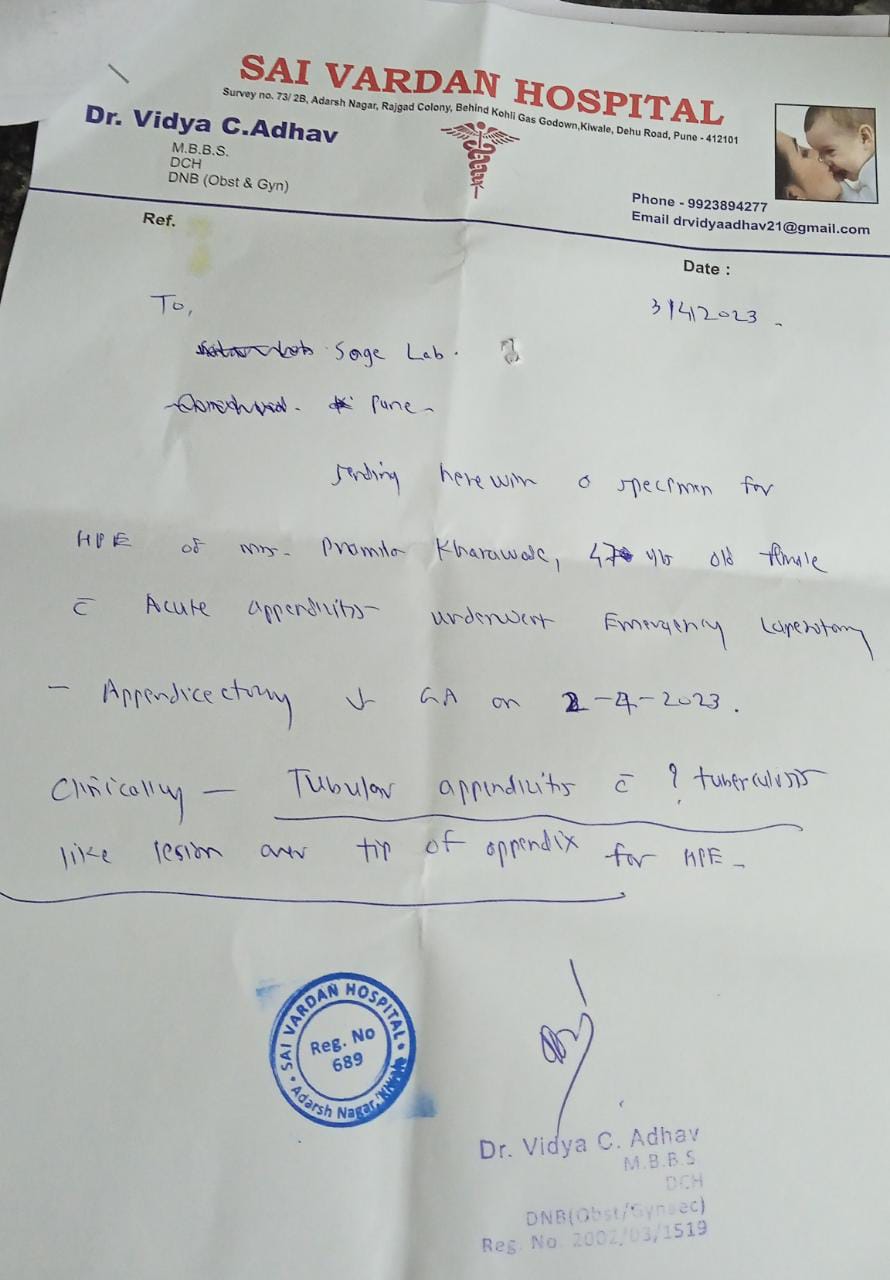 SAI VARDAN HOSPITAL
Survey no. 73/ 2B, Adarsh Nagar, Rajgad Colony, Behind Kohli Gas Godown,Kiwale, Dehu Road, Pune - 412101
Dr. Vidya C.Adhav
M.B.B.S.
DCH
DNB (Obst & Gyn)
Phone - 9923894277
Email drvidyaadhav21@gmail.com
Ref.
Date :
3/4/2023.
To,
Sage Lab.
Pune
Sending herewith a specimen for
HPE of Mrs. Pramila 47 yr old female
c̄ Acute appendicitis underwent Emergency Laparotomy
- Appendicectomy ↓ GA on 2-4-2023.
Clinically - Tubular appendicitis c̄ ? tuberculosis
like lesion over tip of appendix for HPE -
SAI VARDAN HOSPITAL
Reg. No
689
Adarsh Nagar, Kiwale
Dr. Vidya C. Adhav
M.B.B.S
DCH
DNB(Obst/Gynaec)
Reg. No. 2002/03/1519